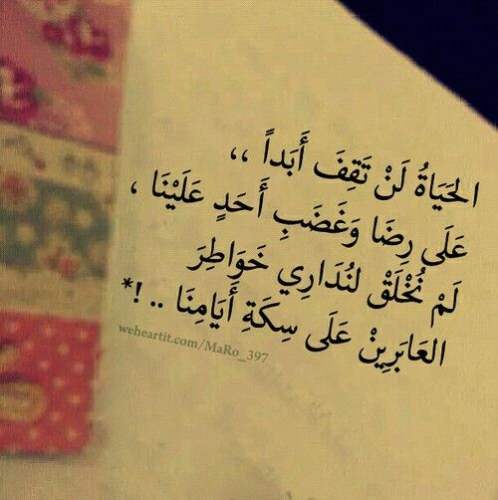 الحَيَاةُ لَنْ تَقِفَ أَبَداً ،،
عَلَى رِضَا وَغَضَبِ أَحَدٍ عَلَيْنَا ،
لَمْ نُخْلَقْ لنُدَارِي خَوَاطِرَ
العَابَرِينْ عَلَى سِكَةِ أَيَامِنَا .. !*
weheartit.com/MaRo_397